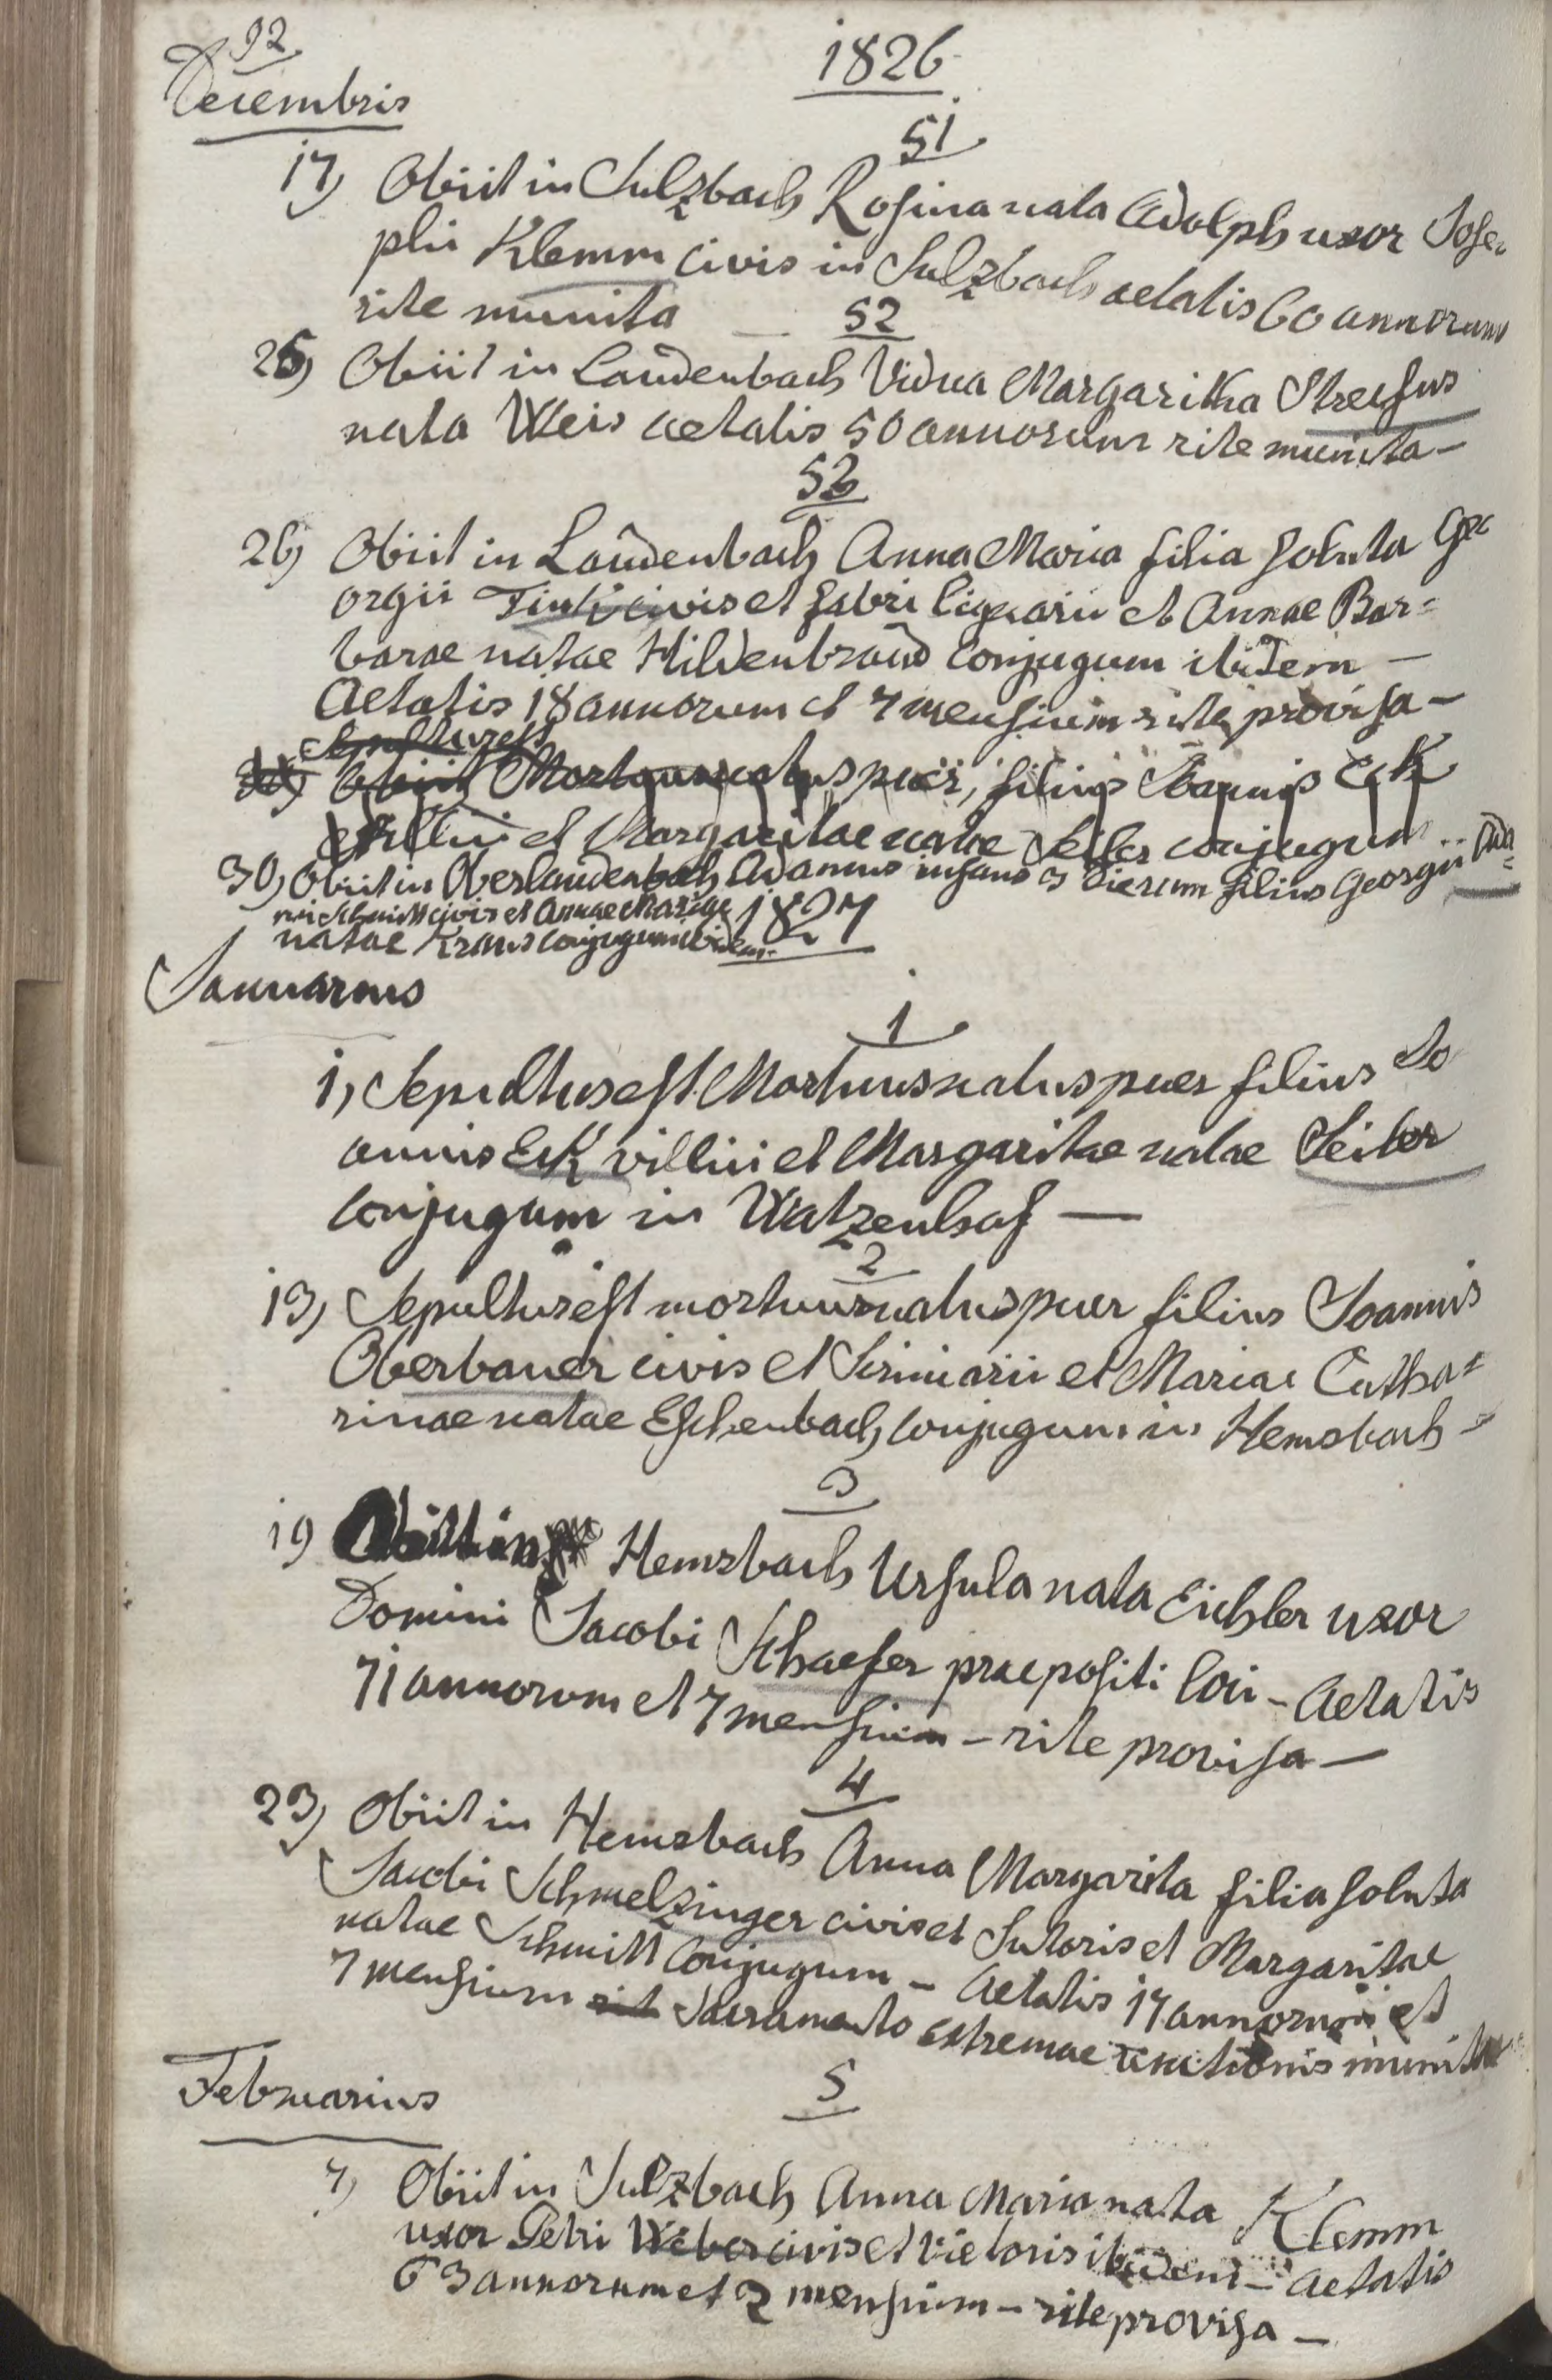 92
1826
Decembris
51
17) Obiit in Sulzbach Rosina nata Adolph uxor Jose-
phi Klemm civis in Sulzbach aetatis 60 annorum
rite munita —
52
25) Obiit in Laudenbach Vidua Margaritha Streifus
nata Weis aetatis 50 annorum rite munita —
53
26) Obiit in Laudenbach Anna Maria filia soluta Ge
orgii civis et fabri lignarii et Annae Bar=
barae natae Hildenbrand conjugum ibidem —
Aetatis 18 annorum et 7 mensium rite provisa —
Sepultus est
Obiit Mortuus natus puer, filius Joannis Eck
villici et Margaritae natae Seiler conjugum
30) Obiit in Oberlaudenbach Adamus infans 3 dierum filius Georgii Ada=
mi Schmitt civis et Annae Mariae
natae Kraus conjugum ibidem.
1827
Januarius
1
1, Sepultus est Mortuus natus puer filius Jo
annis Eck villici et Margaritae natae Seiler
conjugum in Watzenhof —
2
13, Sepultus est mortuus natus puer filius Joannis
Oberbauer civis et Scriniarii et Mariae Catha=
rinae natae Eschenbach conjugum in Hemsbach =
3
19 Obiit in Hemsbach Ursula nata Eichler uxor
Domini Jacobi Schaefer praepositi loci — Aetatis
71 annorum et 7 mensium — rite provisa —
4
23) Obiit in Hemsbach Anna Margarita filia soluta
Jacobi Schmelzinger civis et Sutoris et Margaritae
natae Schmitt conjugum — Aetatis 17 annorum et
7 mensium rit Sacramento extremae unctionis munita
Februarius
5
7) Obiit in Sulzbach Anna Maria nata Klemm
uxor Petri Weber civis et vietoris ibidem — Aetatis
63 annorum et 2 mensium — rite provisa —